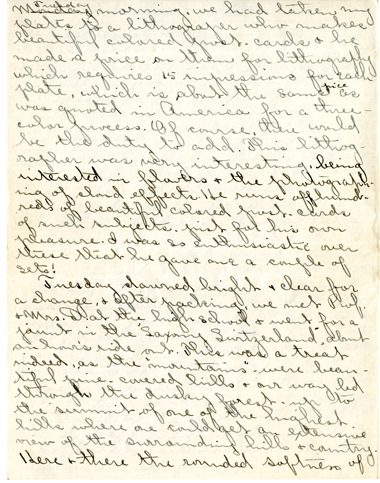 Monday morning, we had taken my
plates to a lithographer who makes
beautiful colored post-cards & he
made a price on them for lithography
which requires 15 impressions for each
plate, which is about the same price as
was quoted in America for a three-
color process. (Of course, there would
be the duty to add. This lithog-
rapher was very interesting, being
interested in flowers & the photograph-
ing of cloud effects. He runs off hund-
reds of beautiful colored post-cards
of such subjects just for his own
pleasure. I was so enthusiastic over
these that he gave me a couple of
sets!
Tuesday dawned bright & clear for
a change, & after packing we met Prof.
& Mrs. at the high school & went for a
jaunt in the "Saxony Switzerland", about
an hour's ride out. This was a treat
indeed, as the "mountains" were beau-
tiful pine-covered hills & our way led
through the dusky forest up to
the summit of one of the highest
hills where one could get an extensive
view of the surrounding hills & country.
Here & there the rounded softness of